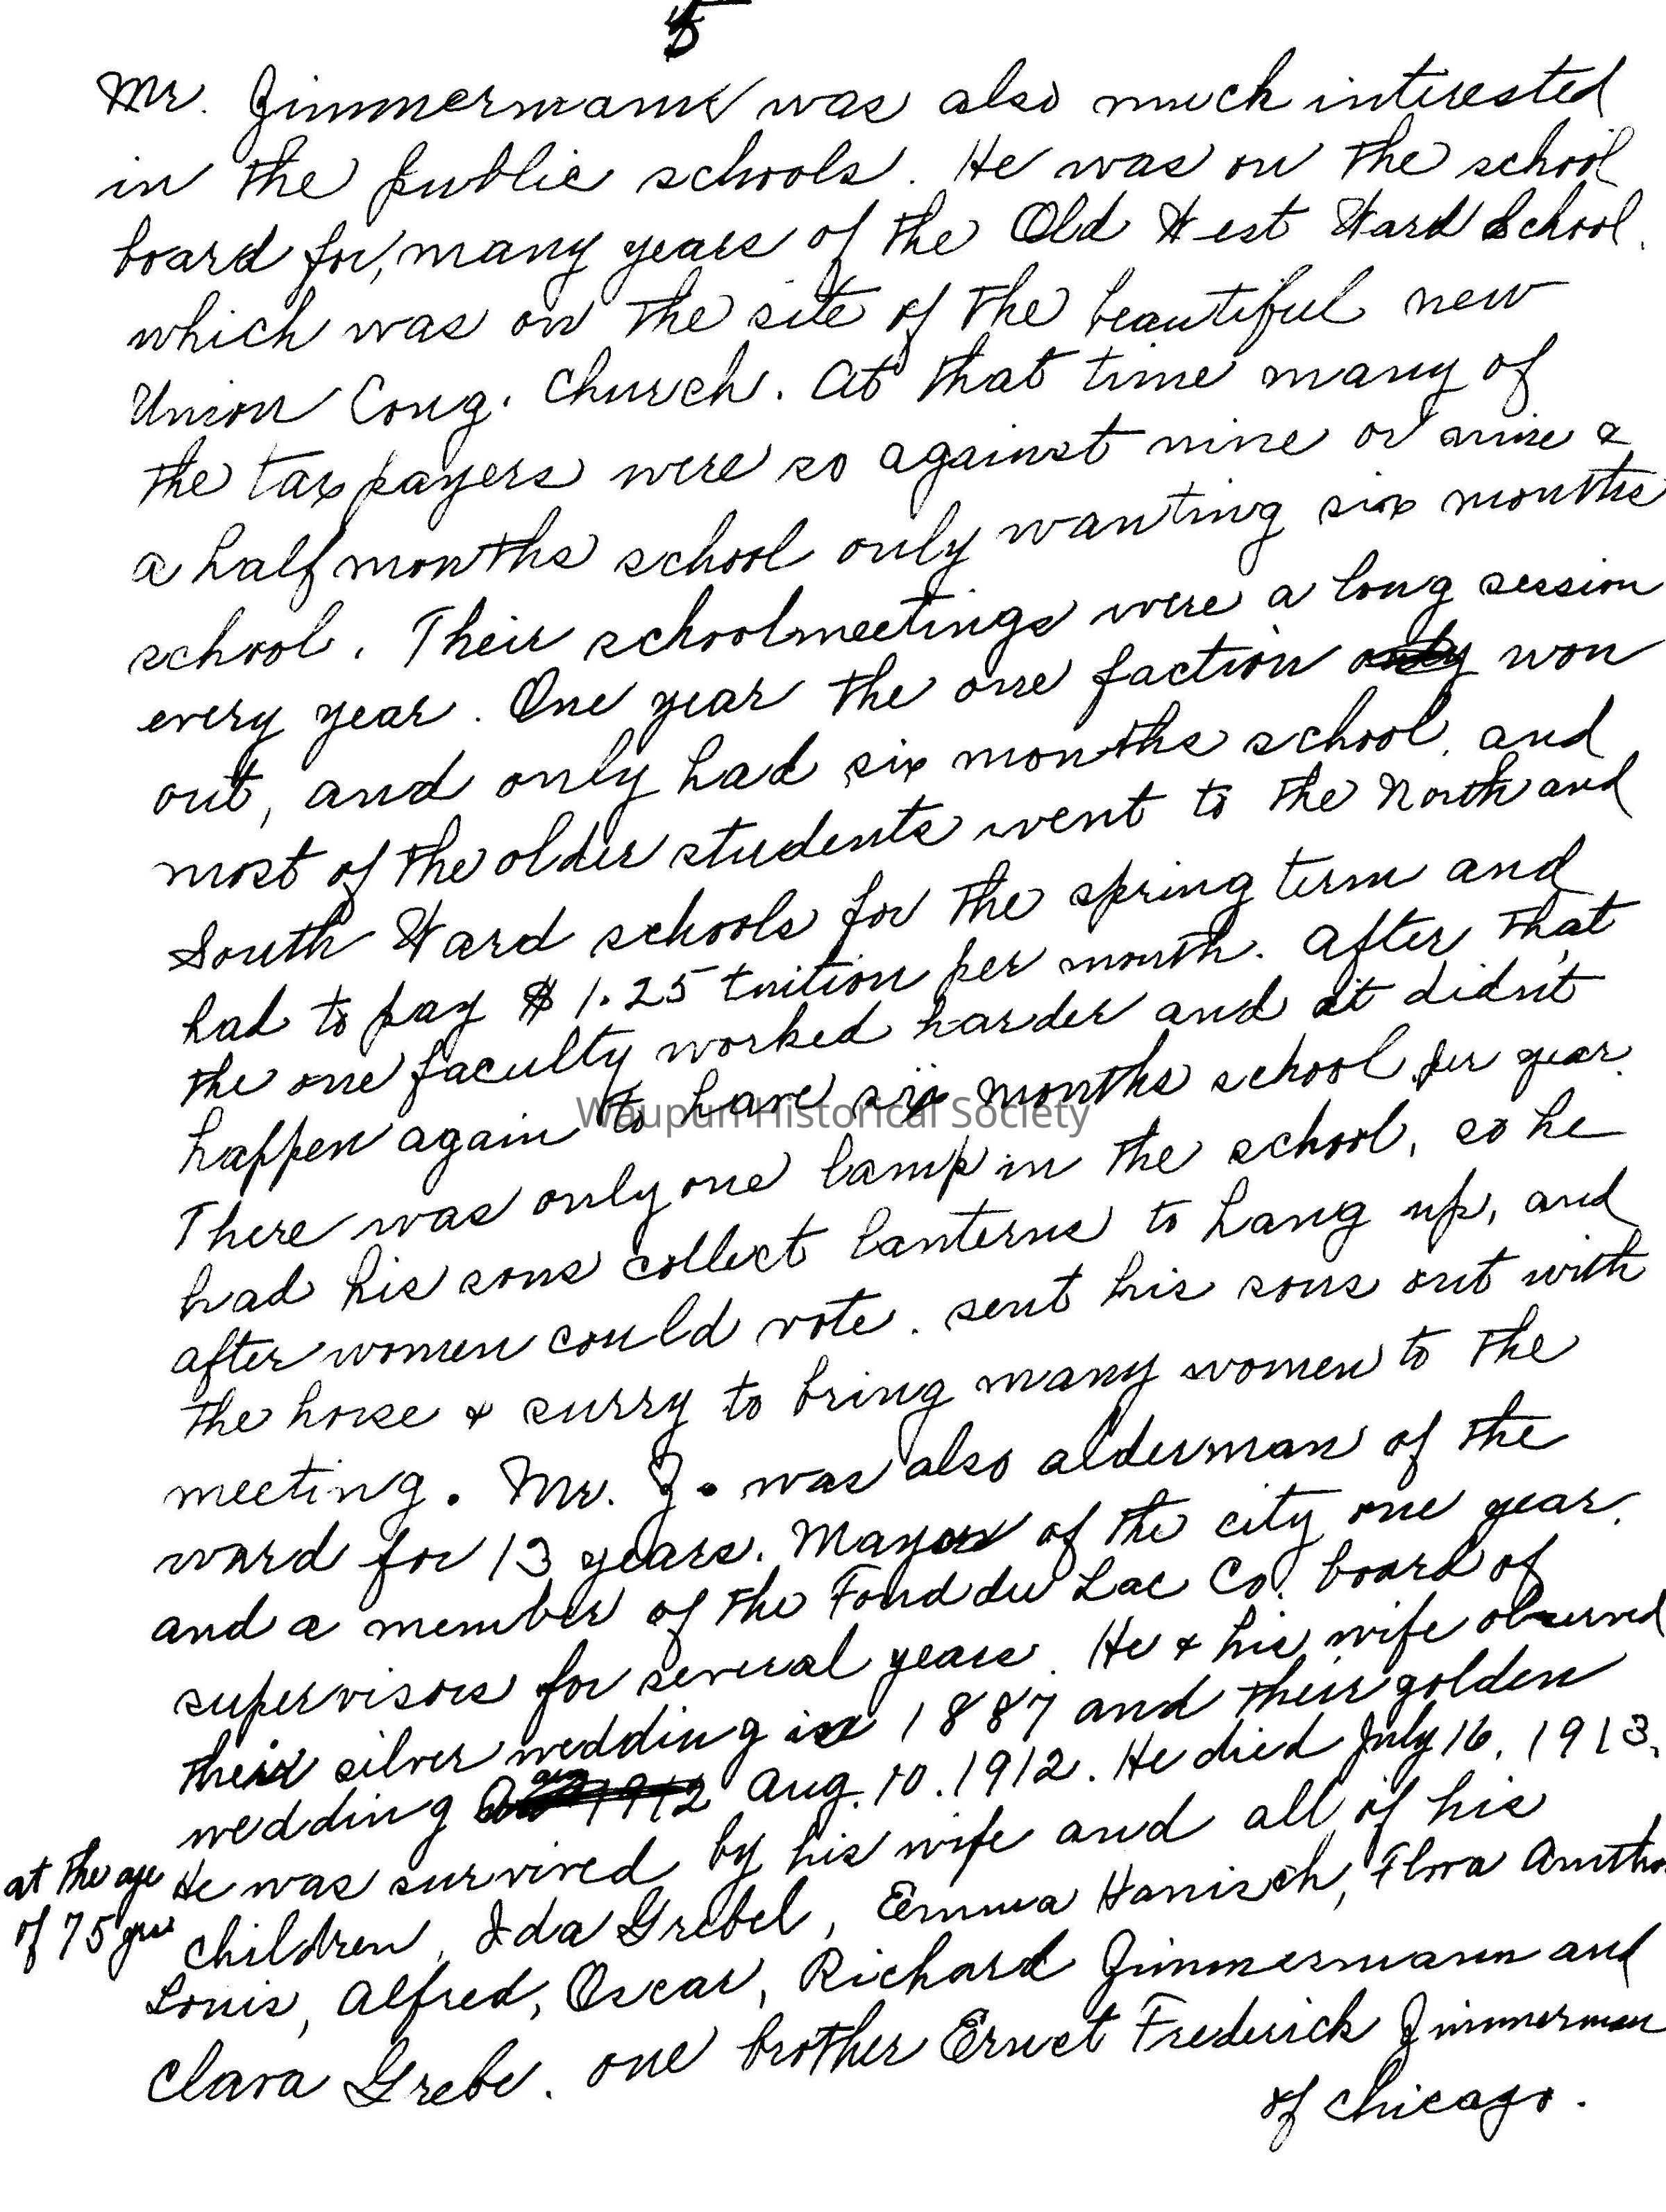 5
Mr. Zimmermann was also much interested
in the public schools. He was on the school
board for, many years of the Old West Ward School.
which was on the site of the beautiful new
Union Cong. Church. At that time many of
the tax payers were so against nine or nine &
a half months school only wanting six months
school. Their schoolmeetings were a long session
every year. One year the one faction only won
out, and only had six months school, and
most of the older students went to the North and
South Ward schools for the spring term and
had to pay $1.25 tuition per month. After that
the one faculty worked harder and it didn't
happen again to have six months school per year.
Waupun Historical Society
There was only one lamp in the school, so he
had his sons collect lanterns to hang up, and
after women could vote. sent his sons out with
the horse & surry to bring many women to the
meeting. Mr. Z. was also alderman of the
ward for 13 years. Mayor of the city one year.
and a member of the Fond du Lac Co. board of
supervisors for several years. He & his wife observed
their silver wedding in 1887 and their golden
wedding 1912 Aug. 10. 1912. He died July 16, 1913.
at the age
of 75 yrs
He was survived by his wife and all of his
children, Ida Grebel, Emma Hanisch, Flora
Louis, Alfred, Oscar, Richard Zimmermann and
Clara Grebe. one brother Ernest Frederick Zimmerman
of Chicago.